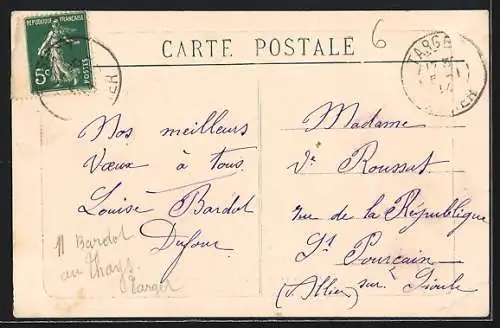 RÉPUBLIQUE FRANÇAISE
5c
POSTES
6
CARTE POSTALE
TARGE
14
ALLIER
Nos meilleurs
Vœux à tous.
Louise Bardol
Dufour
Madame
Ve Roussat
rue de la République
St Pourçain
(Allier) sur Sioule
Bardol
au Thays
Targer